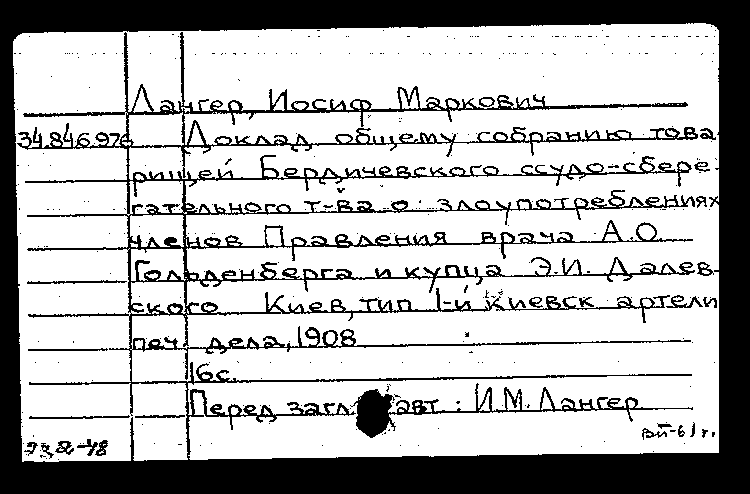 Лангер, Иосиф Маркович
34.846.976 Доклад общему собранию това-
рищей Бердичевского ссудо-сбере-
гательного т-ва о злоупотреблениях
членов Правления врача А.О.
Гольденберга и купца Э.И. Далев-
ского Киев, тип 1-й Киевск артели
печ. дела, 1908
16с.
Перед загл. авт : И.М. Лангер
вп-61г.